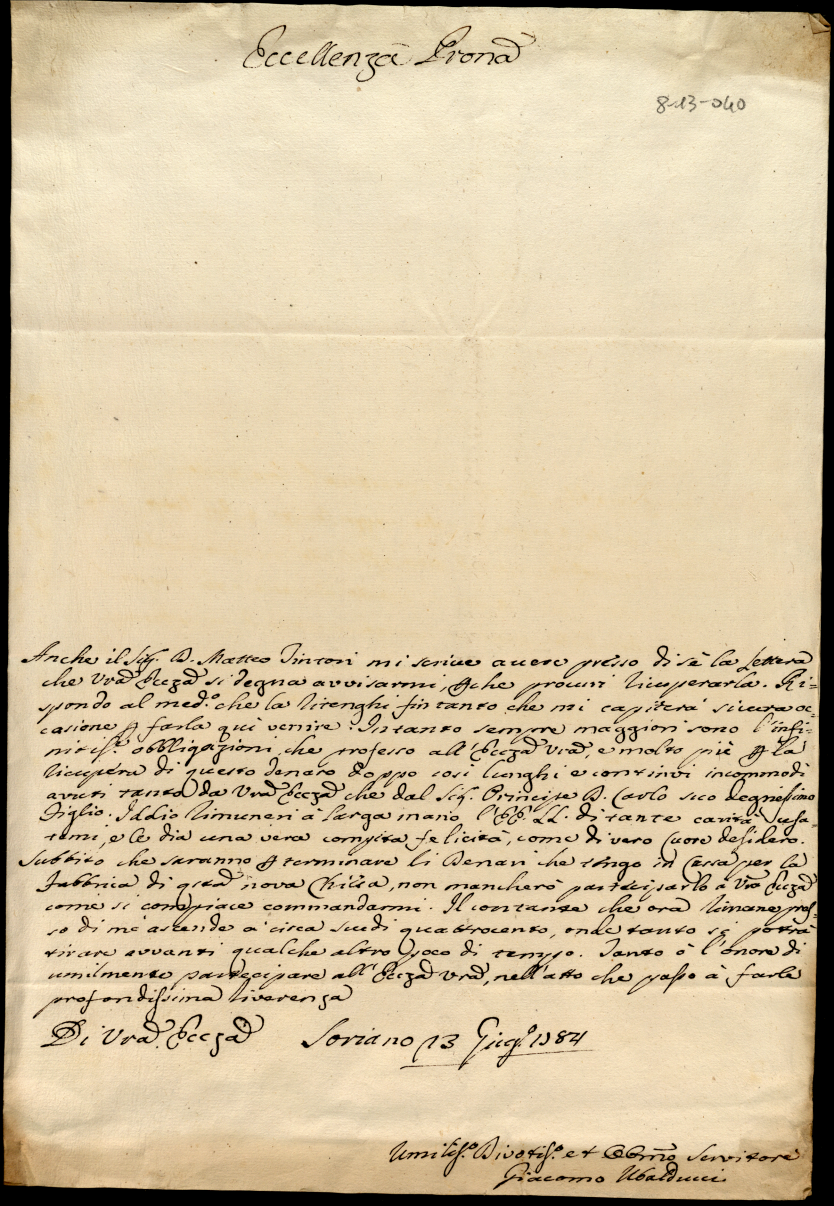 Eccellenza Prona
8-13-040
Anche il Sig. D. Matteo Tintori mi scrive avere presso di sè la Lettera
che Vra Eccza si degna avvisarmi, pche procuri ricuperarla. Ri=
spondo al medo. che la ritenghi fintanto che mi capiterà sicura oc=
casione p farla quì venire. Intanto sempre maggiori sono l'infi=
nitisse. obbligazioni, che professo all'Eccza Vra, e molto più p la
ricupera di questo denaro doppo così lunghi e continvi incommodi
avuti tanto da Vra Eccza che dal Sig. Principe D. Carlo suo degnissimo
Figlio. Iddio rimuneri à larga mano l'EE. LL. di tante carità usa=
temi, e le dia una vera compita felicità, come di vero Cuore desidero.
Subbito che saranno p terminare li Denari che tengo in Cassa per la
Fabbrica di qsta nova Chiesa, non mancherò participarlo a Vra Eccza
come si compiace commandarmi. Il contante che ora rimane pres=
so di me ascende a circa scudi quattrocento, onde tanto si potrà
tirare avvanti qualche altro poco di tempo. Tanto ò l'onore di
umilmente partecipare all'Eccza Vra, nell'atto che passo à farle
profondissima riverenza
Di Vra. Eccza Soriano 13 Giugo. 1784
Umilisso. Divotisso. et Obbmo Servitore
Giacomo Ubalducci